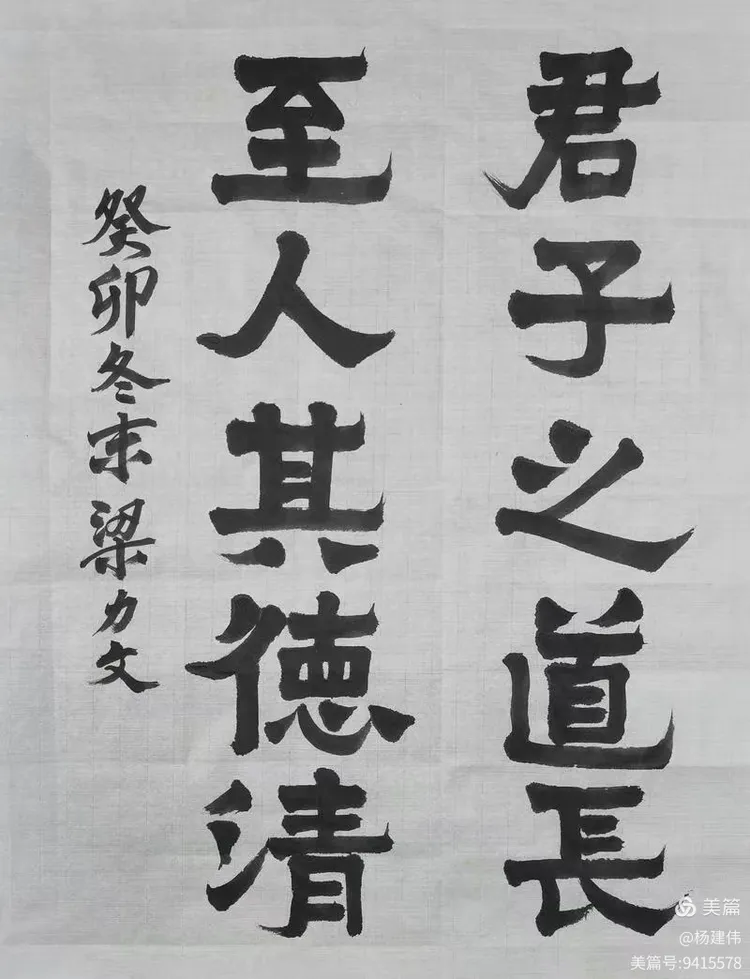 君子之道長
至人其德清
癸卯冬末梁力文
美篇
@杨建伟
美篇号:9415578